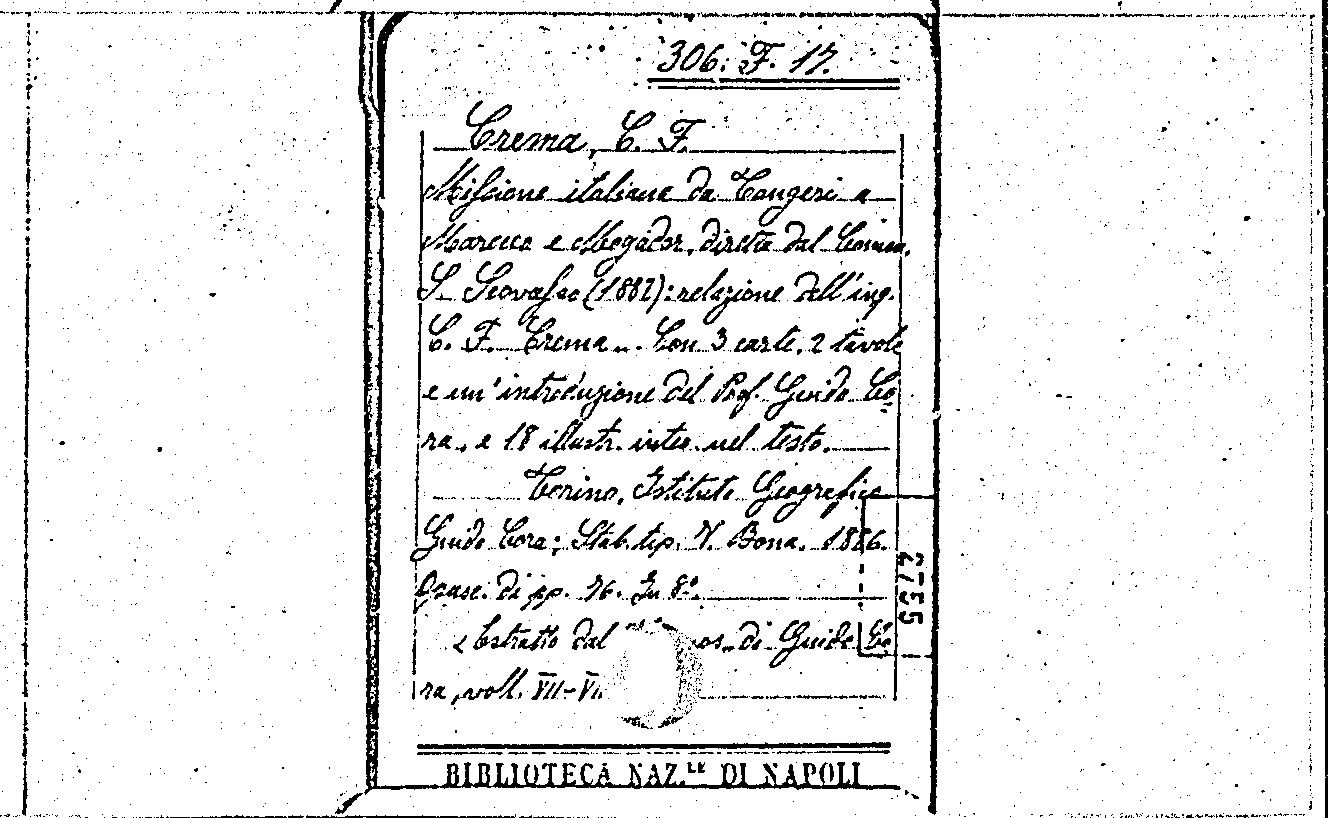 306. F. 17.
Crema, C. F.
Missione italiana da Tangeri a
Marocco e Mogador, diretta dal Comm.
S. Scovasso (1882): relazione dell'ing.
C. F. Crema... Con 3 carte, 2 tavole
e un'introduzione del Prof. Guido Co-
ra, e 18 illustr. inter. nel testo.
Torino, Istituto Geografico
Guido Cora; Stab. tip. V. Bona. 1886.
Opusc. di pp. 76. In 8°.
Estratto dal os, di Guido Co
ra, voll. VII-VII
BIBLIOTECA NAZ.LE DI NAPOLI